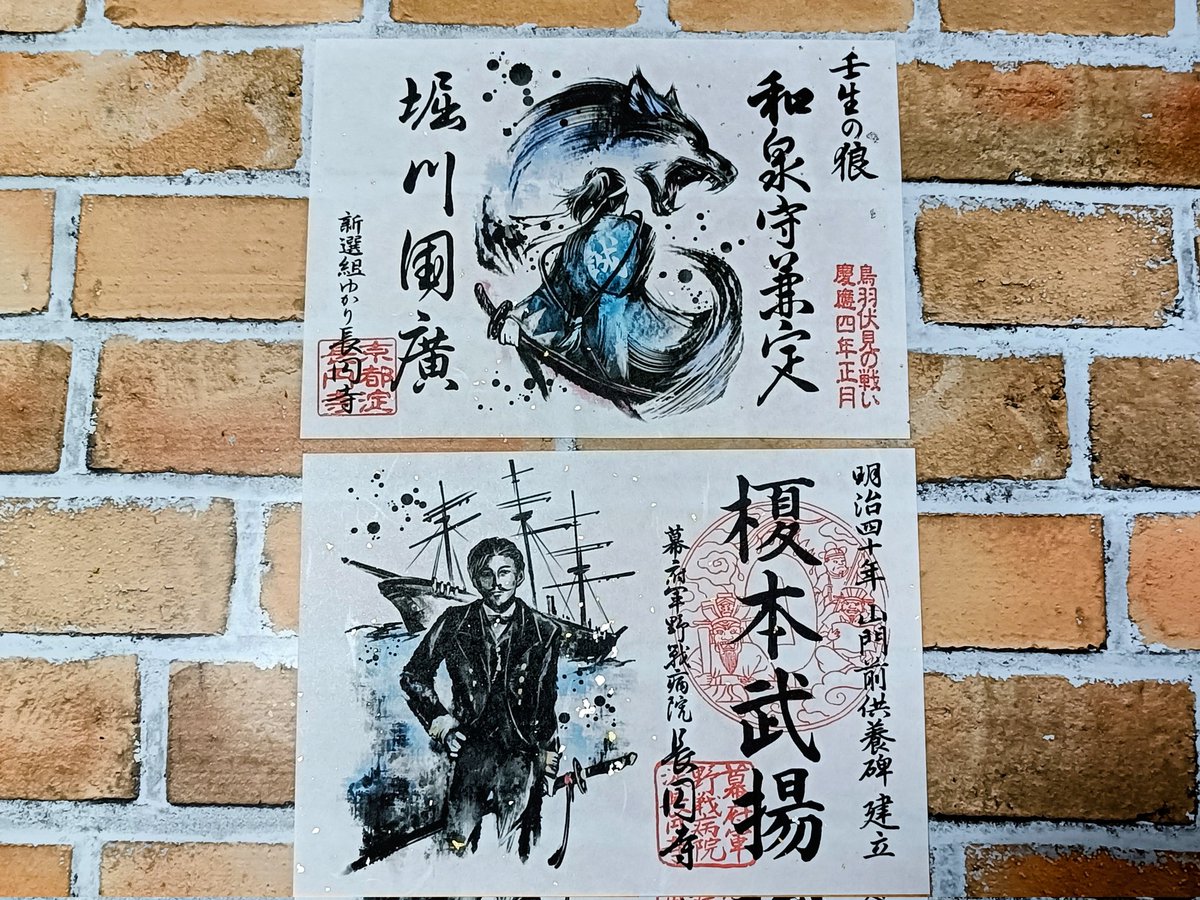 壬生の狼
和泉守兼定
鳥羽伏見の戦い
慶應四年正月
堀川國廣
新選組ゆかり長円寺
京都淀
明治四十年 山門前供養碑建立
榎本武揚
幕府軍野戦病院 長円寺
幕府軍
野戦病院